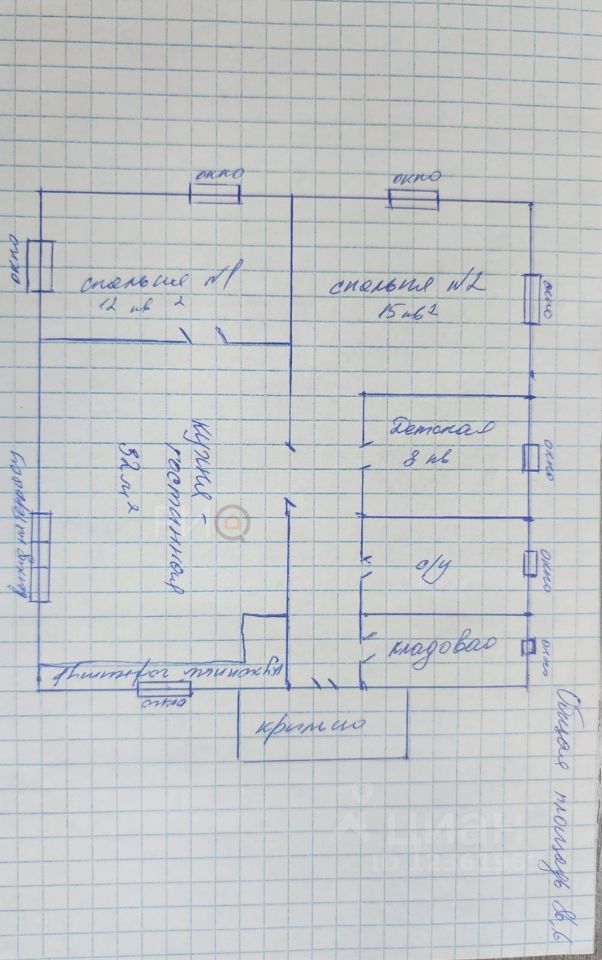 окно
окно
окно
спальня №1
12 кв 2
спальня №2
15 кв2
окно
Детская
8 кв
окно
кухня -
гостинная
32 м2
с/у
окно
кладовао
окно
кухонный гарнитур
окно
крыльцо
Общая площадь
ЦИАН